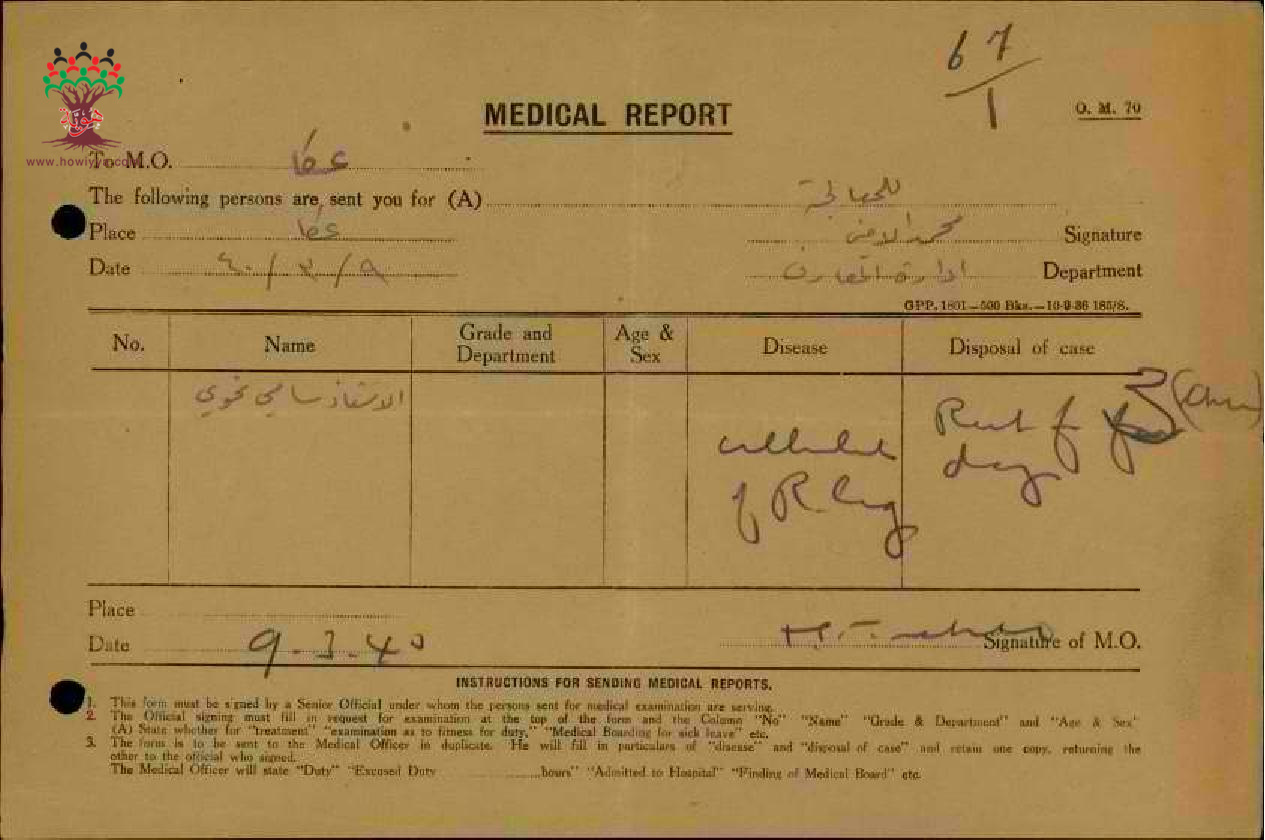 67
1
MEDICAL REPORT
O. M. 70
هوية
www.howiyya.com
To M.O. عكا
The following persons are sent you for (A) للمعالجة
Place عكا
Signature
Date ٩/٣/٤٠
ادارة المعارف Department
GPP. 1801—500 Bks.—10-9-36 185/S.
No. Name Grade and Department Age & Sex Disease Disposal of case
الاستاذ سامي
of R. leg
Rest for
days
Place
Date 9.3.40
Signature of M.O.
INSTRUCTIONS FOR SENDING MEDICAL REPORTS.
1. This form must be signed by a Senior Official under whom the persons sent for medical examination are serving.
2. The Official signing must fill in request for examination at the top of the form and the Column "No" "Name" "Grade & Department" and "Age & Sex"
(A) State whether for "treatment" "examination as to fitness for duty," "Medical Boarding for sick leave" etc.
3. The form is to be sent to the Medical Officer in duplicate. He will fill in particulars of "disease" and "disposal of case" and retain one copy, returning the
other to the official who signed.
The Medical Officer will state "Duty" "Excused Duty ..................hours" "Admitted to Hospital" "Finding of Medical Board" etc.